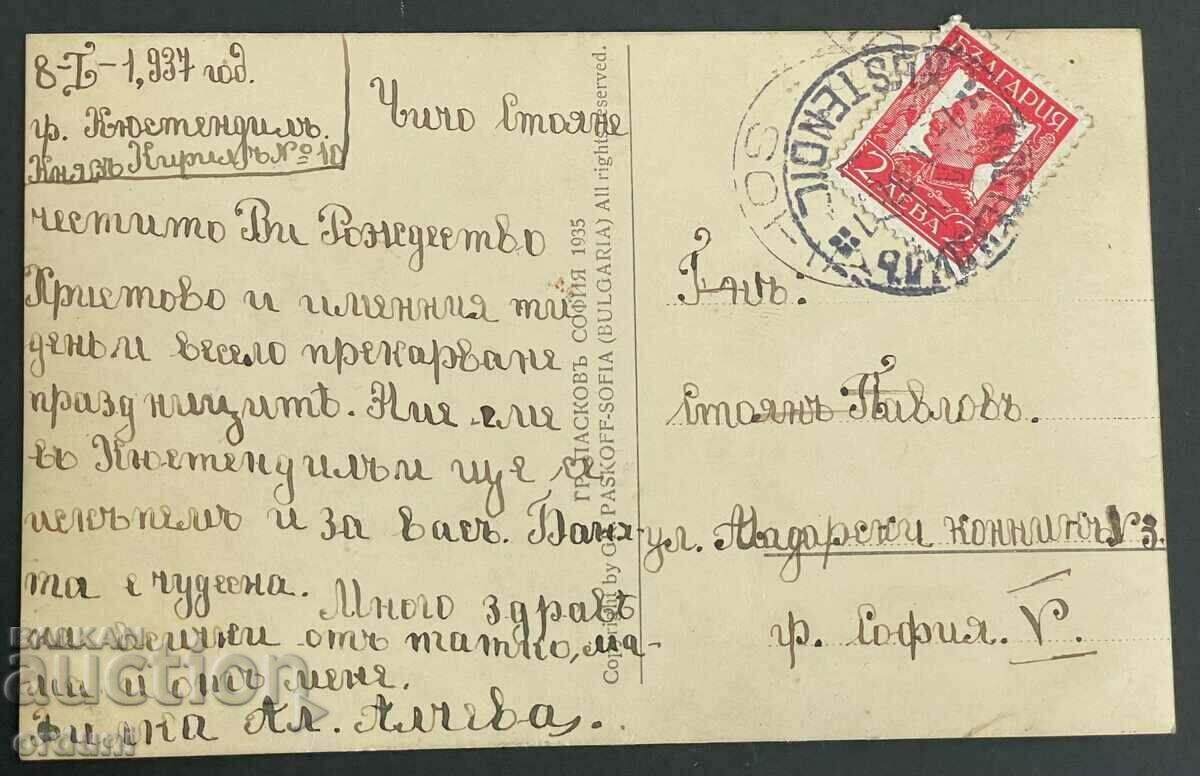 8-I-1,937 год.
гр. Кюстендилъ.
Князъ Кирилъ № 10
Чичо Стояне
честито Ви Рождество
Христово и именния ти
день и весело прекарване
празднициитѣ. Ние сме
въ Кюстендилъ и ще се
изкъпемъ и за васъ. Баня-
та е чудесна. Много здравѣ
на всички отъ татко, ма-
ма и отъ мене.
Ал. Алчева.
ГР. ПАСКОВЪ СОФИЯ 1935
Copyright by G. PASKOFF-SOFIA (BULGARIA) All rights reserved.
БЪЛГАРИЯ
2 ЛЕВА 2
KUSTENDIL
Г-нъ:
Стоянъ Павловъ.
ул. Мадарски конникъ № 3.
гр. София. V.
BALKAN
auction
orduni